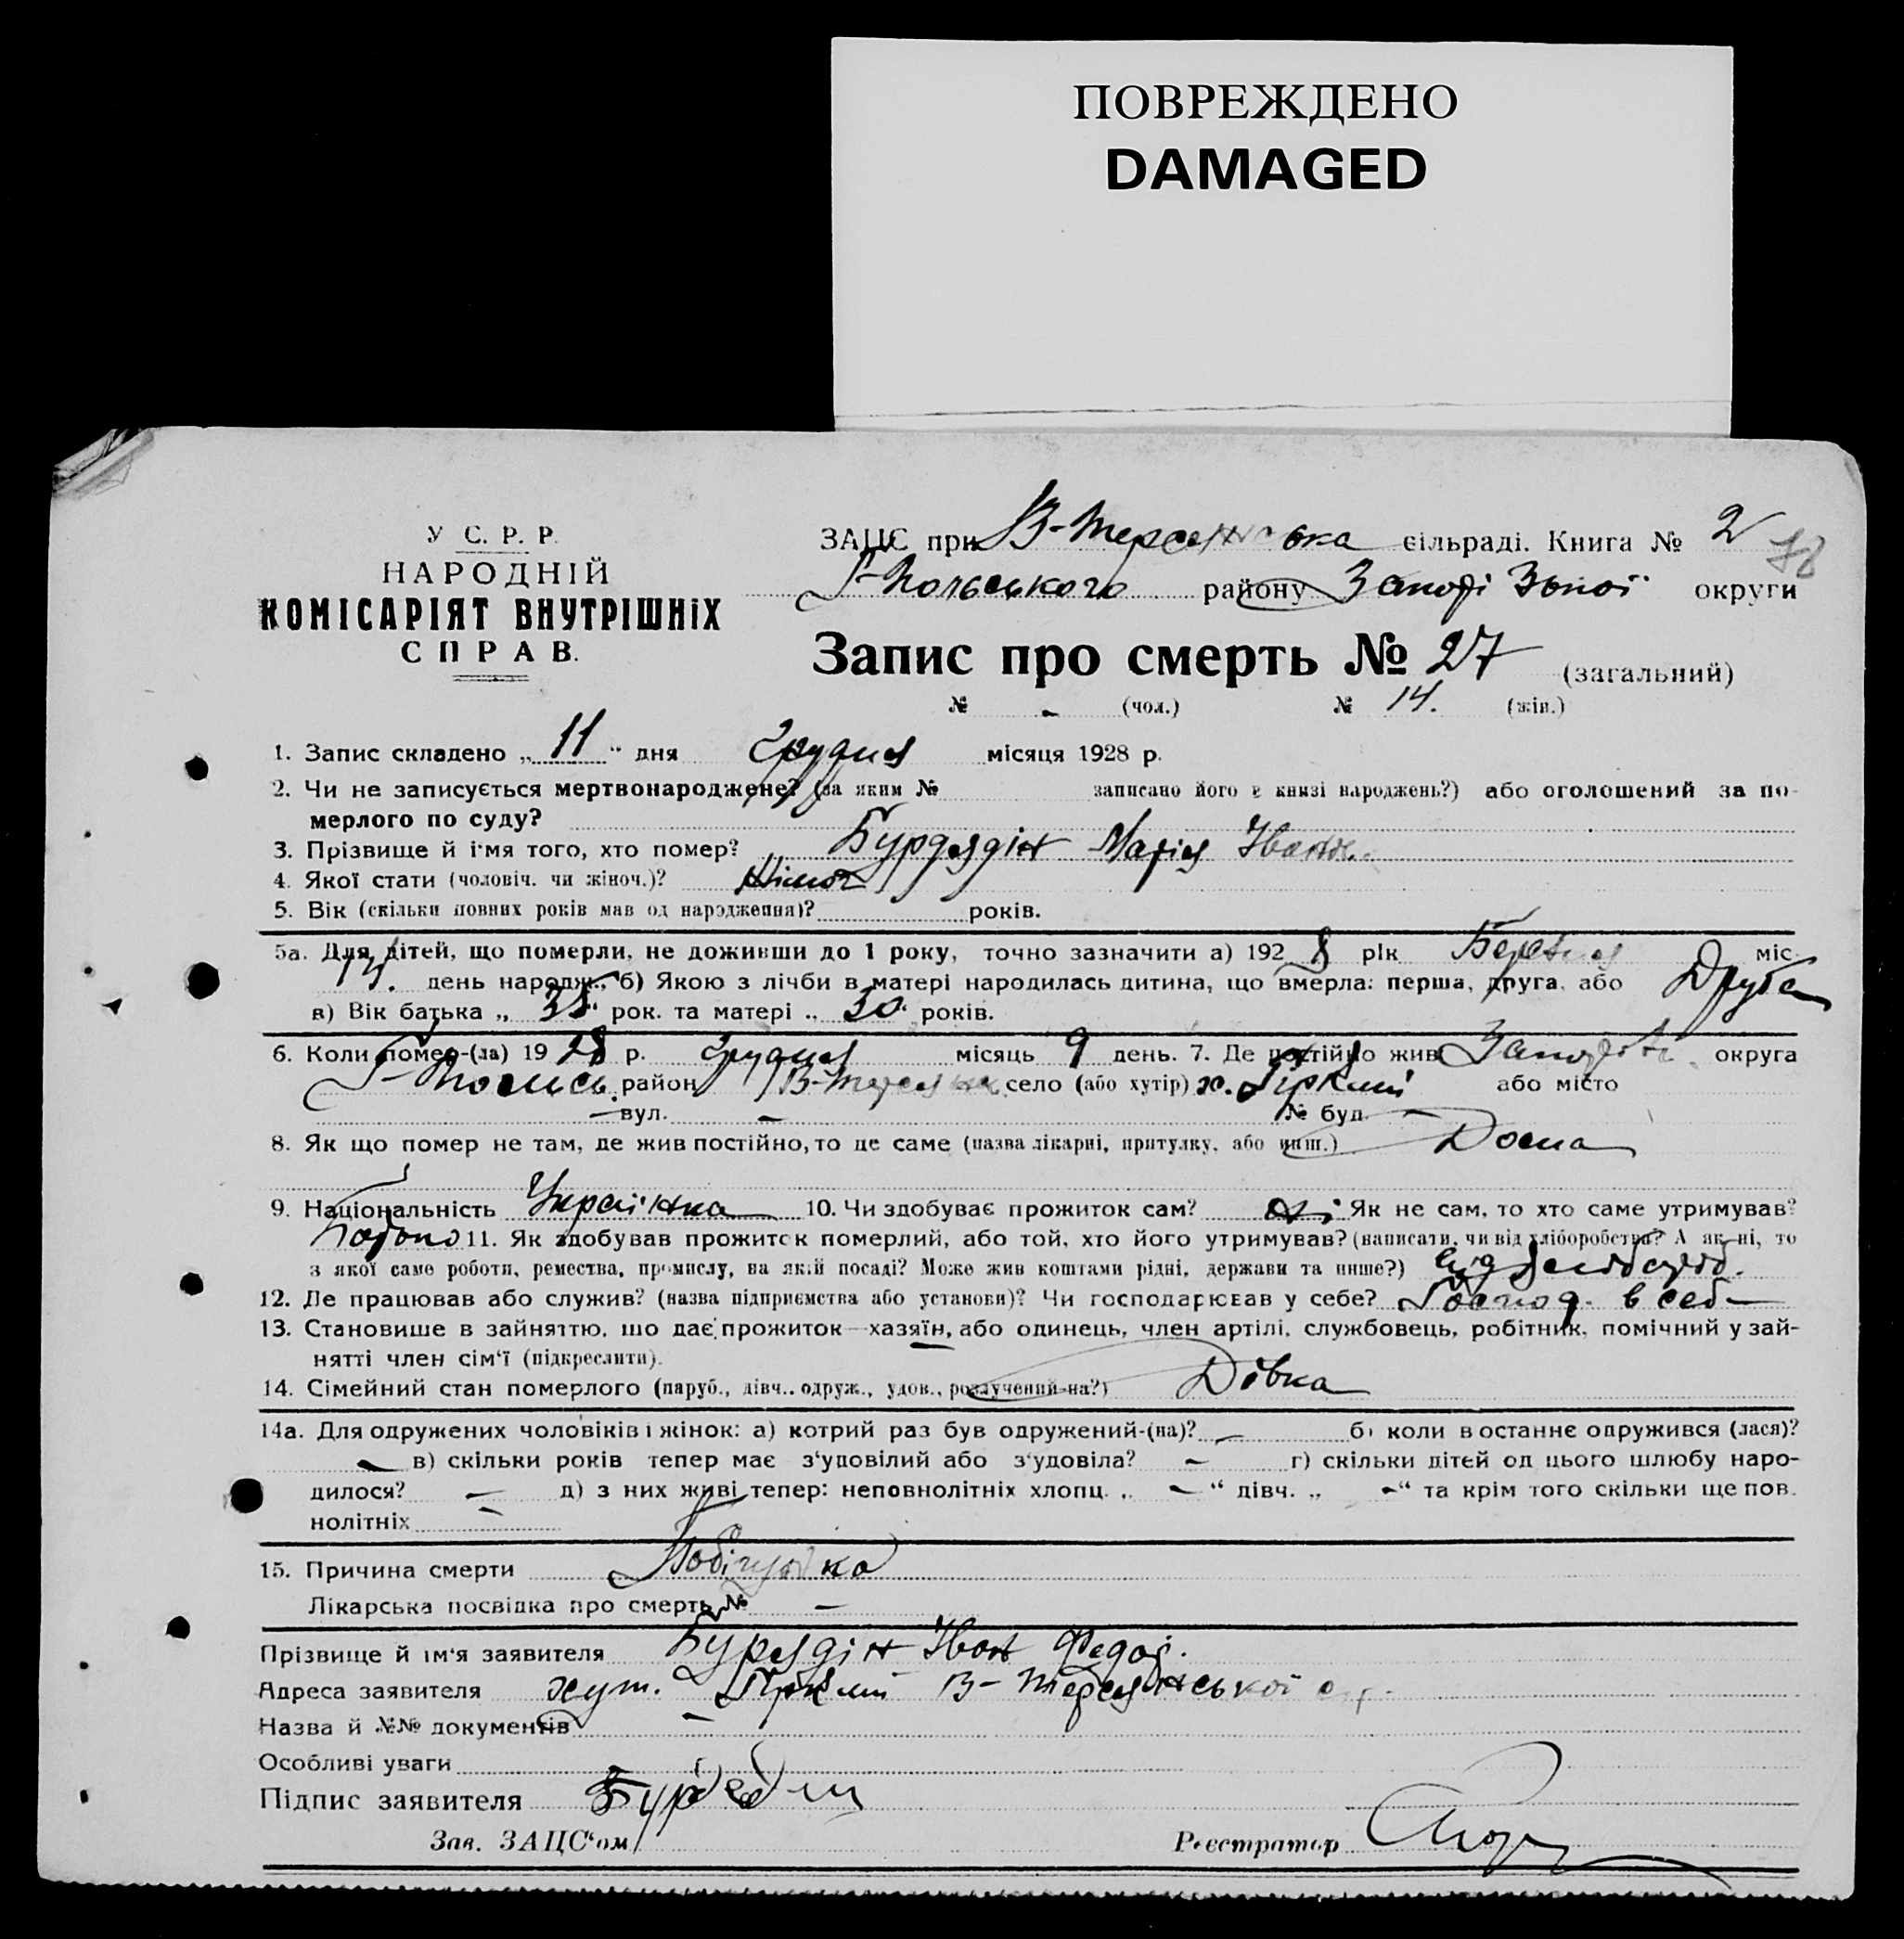 ПОВРЕЖДЕНО
DAMAGED
У С. Р. Р.
НАРОДНІЙ
КОМІСАРІЯТ ВНУТРІШНІХ
СПРАВ.
ЗАЦС при В-Терсянська сільраді. Книга № 2
Г-Польського району Запорізької округи
Запис про смерть № 27 (загальний)
№ - (чол.) № 14. (жін.)
1. Запис складено „ 11 " дня Грудня місяця 1928 р.
2. Чи не записується мертвонароджене? (за яким № записано його в книзі народжень?) або оголошений за по-
мерлого по суду?
3. Прізвище й ім'я того, хто помер? Марія Іванов.
4. Якої стати (чоловіч. чи жіноч.)? Жіноч
5. Вік (скільки повних років мав од народження)? років.
5а. Для дітей, що померли, не доживши до 1 року, точно зазначити а) 192 8 рік Березня міс.
день народж., б) Якою з лічби в матері народилась дитина, що вмерла: перша, друга, або Друга
в) Вік батька „ 35 " рок. та матері „ 30 " років.
6. Коли помер-(ла) 19 28 р. Грудня місяць 9 день. 7. Де постійно жив округа
район В-Терсянка село (або хутір) х. або місто
— вул. — № буд. —
8. Як що помер не там, де жив постійно, то де саме (назва лікарні, притулку, або инш.) Дома
9. Національність Українка 10. Чи здобуває прожиток сам? ні Як не сам, то хто саме утримував?
батько 11. Як здобував прожиток померлий, або той, хто його утримував? (написати, чи від хліборобства? А як ні, то
з якої саме роботи, ремества, промислу, на якій посаді? Може жив коштами рідні, держави та инше?) від
12. Де працював або служив? (назва підприємства або установи)? Чи господарював у себе? Господ. в себ
13. Становище в зайняттю, що дає прожиток—хазяїн, або одинець, член артілі, службовець, робітник, помічний у зай-
нятті член сім'ї (підкреслити).
14. Сімейний стан померлого (паруб., дівч., одруж., удов., розлучений-на?) Дівка
14а. Для одружених чоловіків і жінок: а) котрий раз був одружений-(на)? — б) коли востаннє одружився (лася)?
— в) скільки років тепер має з'уповілий або з'удовіла? — г) скільки дітей од цього шлюбу наро-
дилося? — д) з них живі тепер: неповнолітніх хлопц. „ — " дівч. „ — " та крім того скільки ще пов.
нолітніх —
15. Причина смерти
Лікарська посвідка про смерть № —
Прізвище й ім'я заявителя Іван Федор.
Адреса заявителя хут. В-Терсянської с/р.
Назва й №№ документів —
Особливі уваги
Підпис заявителя
Зав. ЗАЦС'ом Реєстратор